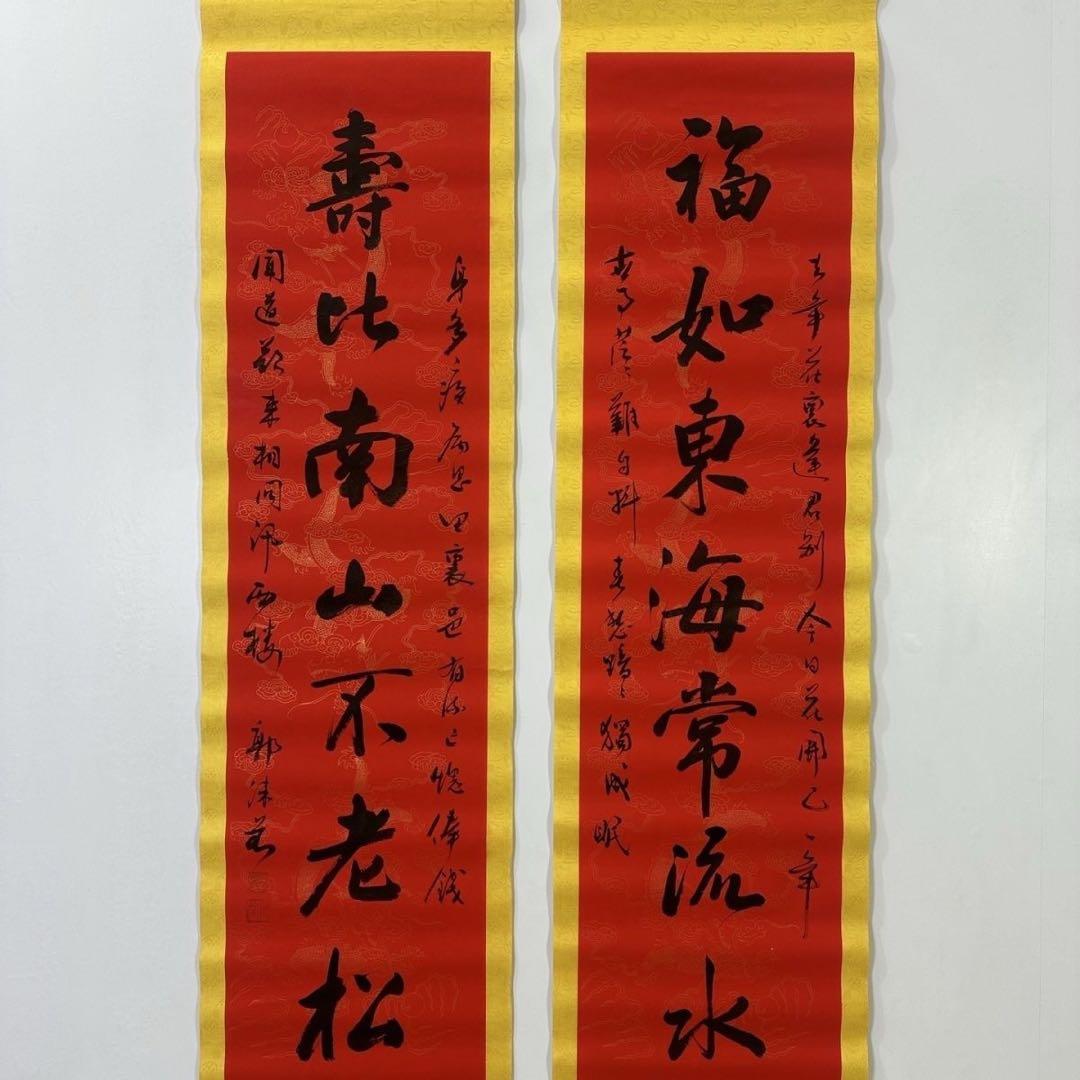 福如東海常流水
去年花裏逢君別今日花開已一年
世事茫〻難自料春愁黯〻獨成眠
壽比南山不老松
身多疾病思田裏邑有流亡愧俸錢
聞道欲來相問訊西樓 郭沫若